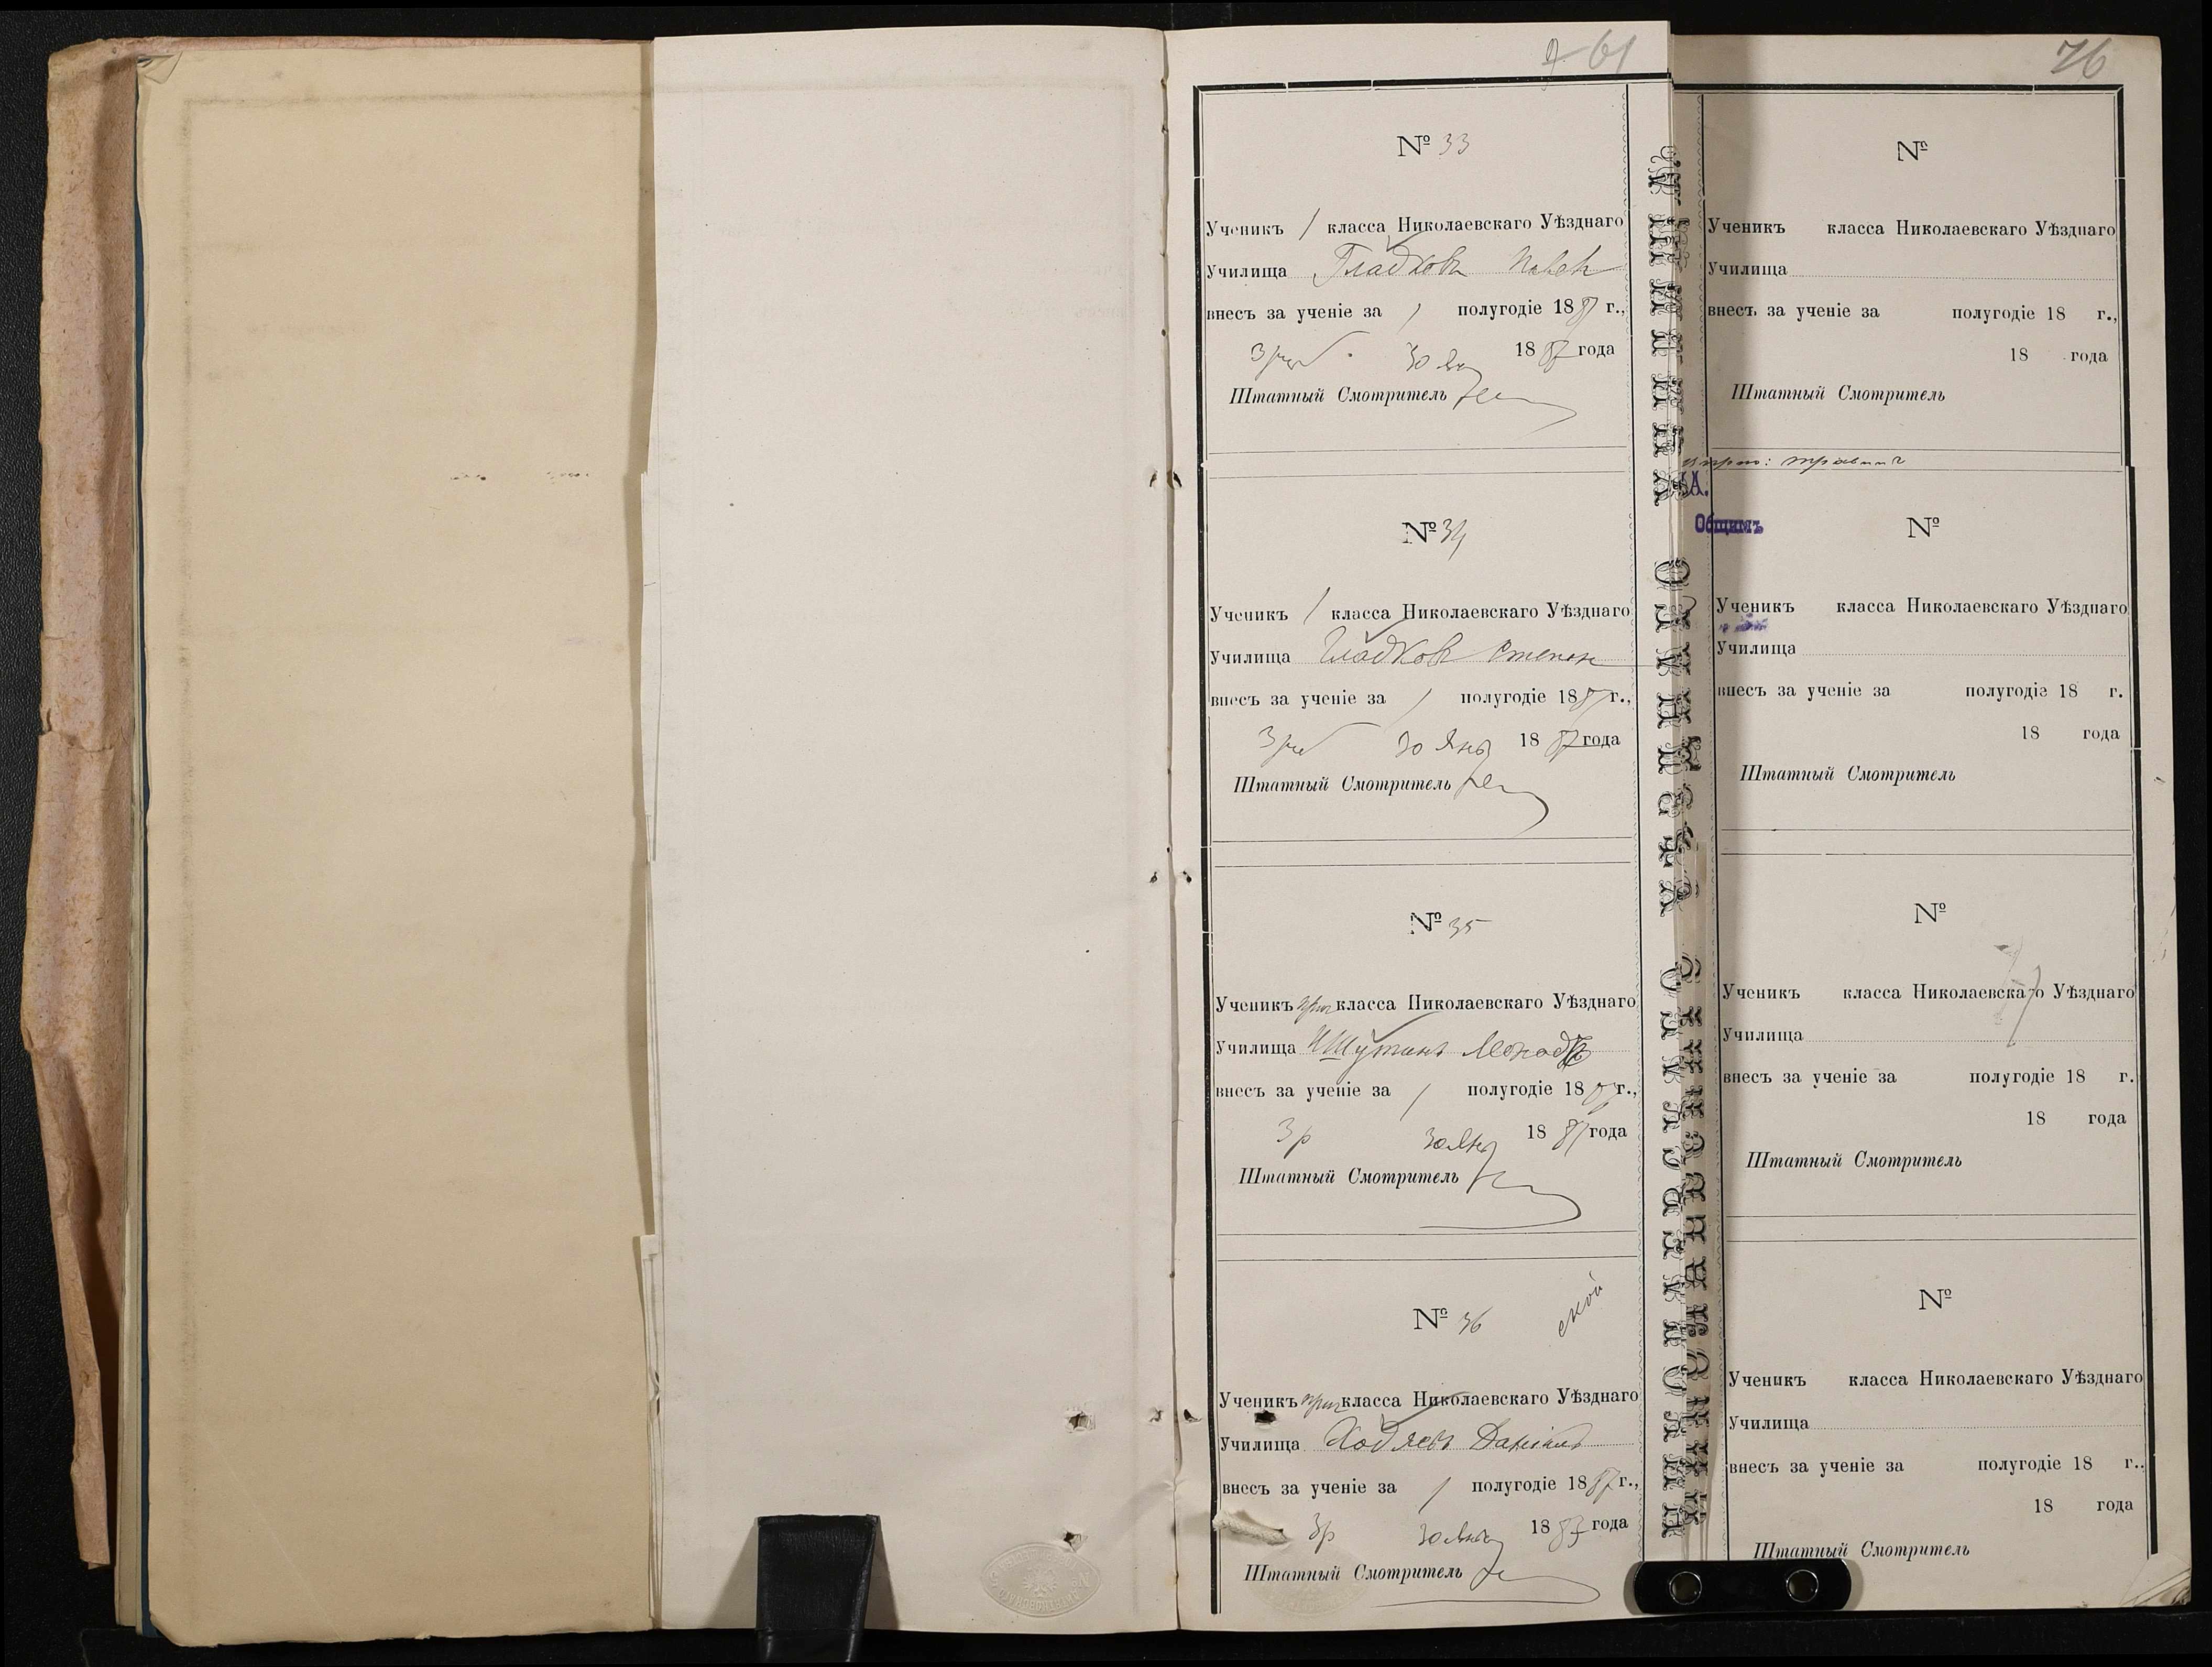 61
№ 33
Ученикъ 1 класса Николаевскаго Уѣзднаго
Училища Гладковъ Павелъ
внесъ за ученіе за 1 полугодіе 1887 г.,
3 руб 30 Ян 1887 года
Штатный Смотритель
№ 34
Ученикъ 1 класса Николаевскаго Уѣзднаго
Училища Гладковъ Степанъ
внесъ за ученіе за 1 полугодіе 1887 г.,
3 руб 30 Янв 1887 года
Штатный Смотритель
№ 35
Ученикъ приг класса Николаевскаго Уѣзднаго
Училища Ишутинъ
внесъ за ученіе за 1 полугодіе 1887 г.,
3 р 30 Янв 1887 года
Штатный Смотритель
№ 36
ской
Ученикъ приг класса Николаевскаго Уѣзднаго
Училища Ходяевъ Даніилъ
внесъ за ученіе за 1 полугодіе 1887 г.,
3 р 30 Янв 1887 года
Штатный Смотритель
76
№
Ученикъ класса Николаевскаго Уѣзднаго
Училища
внесъ за ученіе за полугодіе 18 г.,
18 года
Штатный Смотритель
А.
Общимъ
№
Ученикъ класса Николаевскаго Уѣзднаго
Училища
внесъ за ученіе за полугодіе 18 г.
18 года
Штатный Смотритель
№
Ученикъ класса Николаевскаго Уѣзднаго
Училища
внесъ за ученіе за полугодіе 18 г.
18 года
Штатный Смотритель
№
Ученикъ класса Николаевскаго Уѣзднаго
Училища
внесъ за ученіе за полугодіе 18 г.,
18 года
Штатный Смотритель